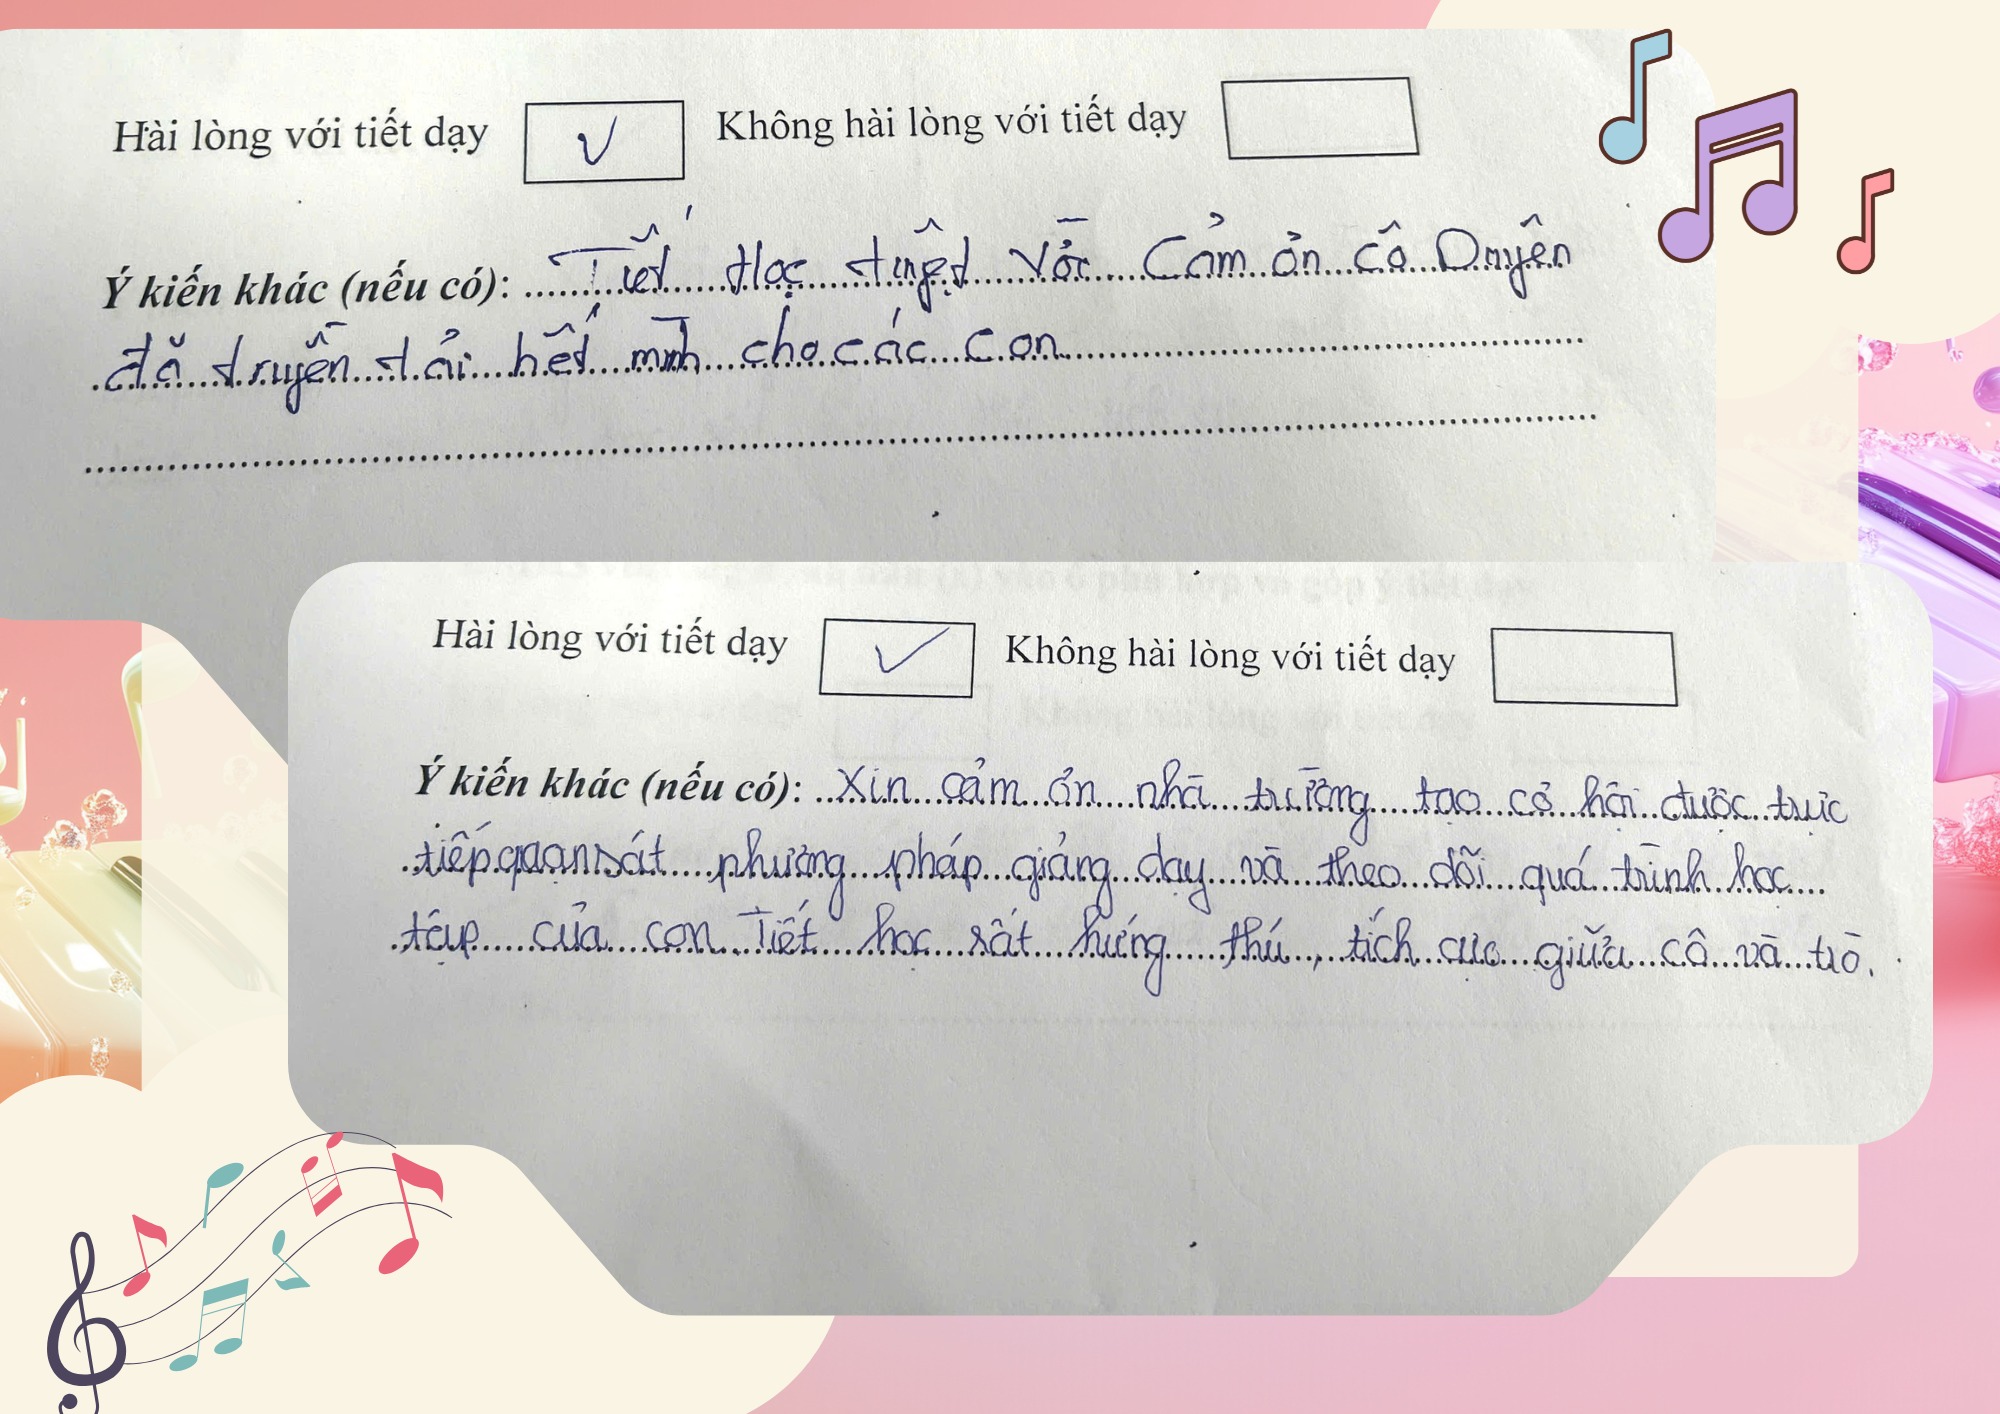 Hài lòng với tiết dạy Không hài lòng với tiết dạy
Ý kiến khác (nếu có): Tiết học tuyệt vời Cảm ơn cô Duyên
đã truyền tải hết mình cho các con
Hài lòng với tiết dạy Không hài lòng với tiết dạy
Ý kiến khác (nếu có): Xin cảm ơn nhà trường tạo cơ hội được trực
tiếp quan sát phương pháp giảng dạy và theo dõi quá trình học
tập của con. Tiết học rất hứng thú, tích cực giữa cô và trò.